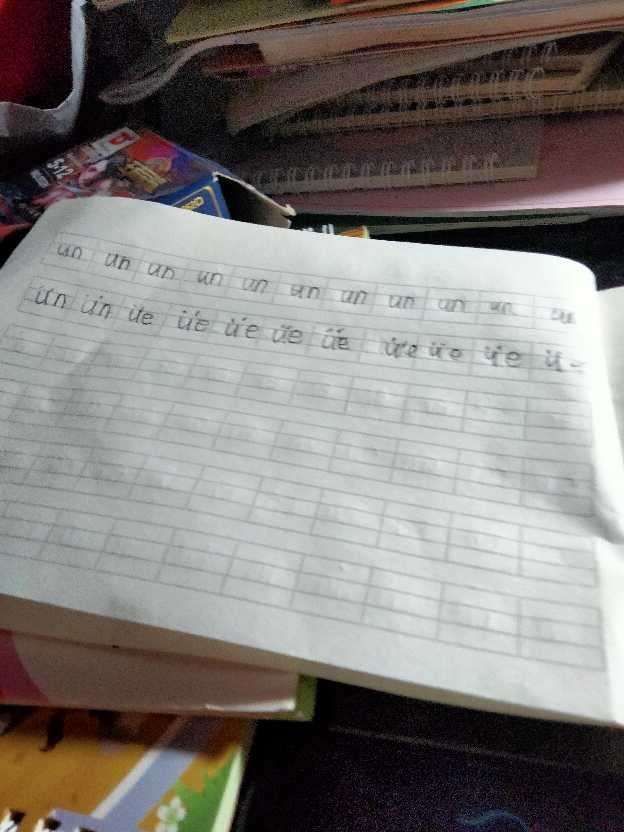 un un un un un un un un un un un
ün ün üe üe üe üe üe üe üe üe ü-
5-12